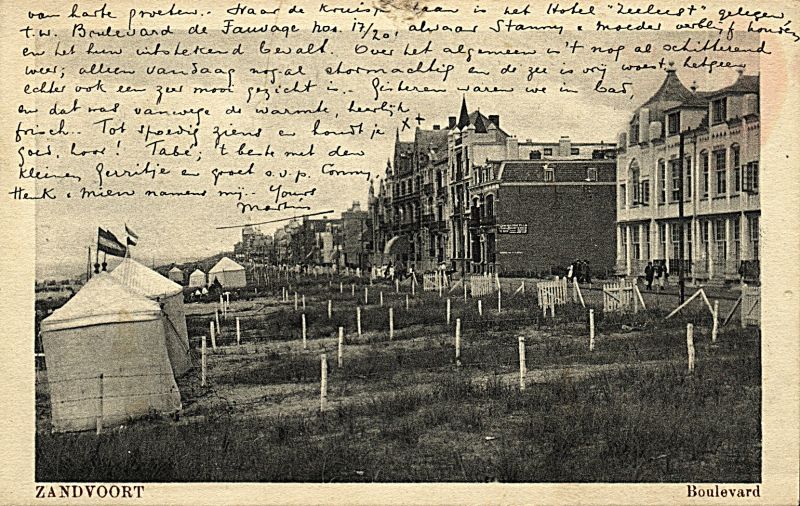 van harte groeten.. Waar de kruisjes staan is het Hotel "Zeelust" gelegen
t.w. Boulevard de Fauvage nos. 17/20, alwaar Stanny & moeder verblijf houden
en het hun uitstekend bevalt. Over het algemeen is 't nogal schitterend
weer, alleen vandaag nogal stormachtig en de zee is vrij woest, hetgeen
echter ook een zeer mooi gezicht is.. Gisteren waren we in bad,
en dat was vanwege de warmte, heerlijk
frisch.. Tot spoedig ziens en houdt je
goed, hoor! Tabé, 't beste met den
kleinen Gerritje en groet s.v.p. Conny,
Henk & Mien namens mij.. Yours
Martin
x+
ZANDVOORT
Boulevard